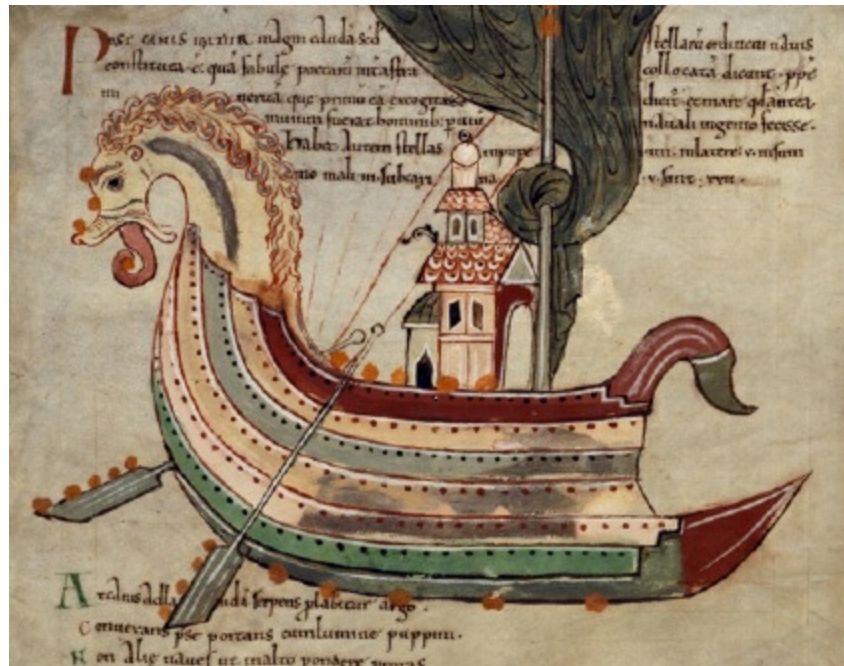 Post canis igitur magni caudā sed stellarū ordinem nauis
constituta ē quā fabule poetarū int astra collocatā dicunt ppt
mi nerua que primū eā excogitasse dicit et mare qd antea
inuium fuerat hominib; nauali ingenio fecisse·
habet autem stellas in puppe ·iiii· in latere ·v· in sum
mo mali iii sub cari na ·v· ·xvii·
At canis ad caudā serpens plabitur argo·
Conuersam pse portans cum lumine puppim·
Non alie naues ut in alto ponere proras